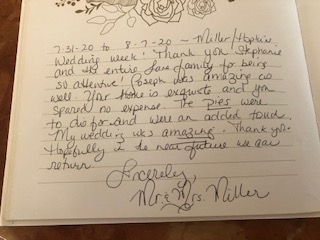 7-31-20 to 8-7-20 ~ Miller/Hopkins
Wedding week! Thank you Stephanie
and the entire family for being
so attentive! Joseph was amazing as
well. Your home is exquisite and you
spared no expense. The pies were
to die for and were an added touch.
My wedding was amazing. Thank you.
Hopefully in the near future we can
return.
Sincerely,
Mr. & Mrs. Miller